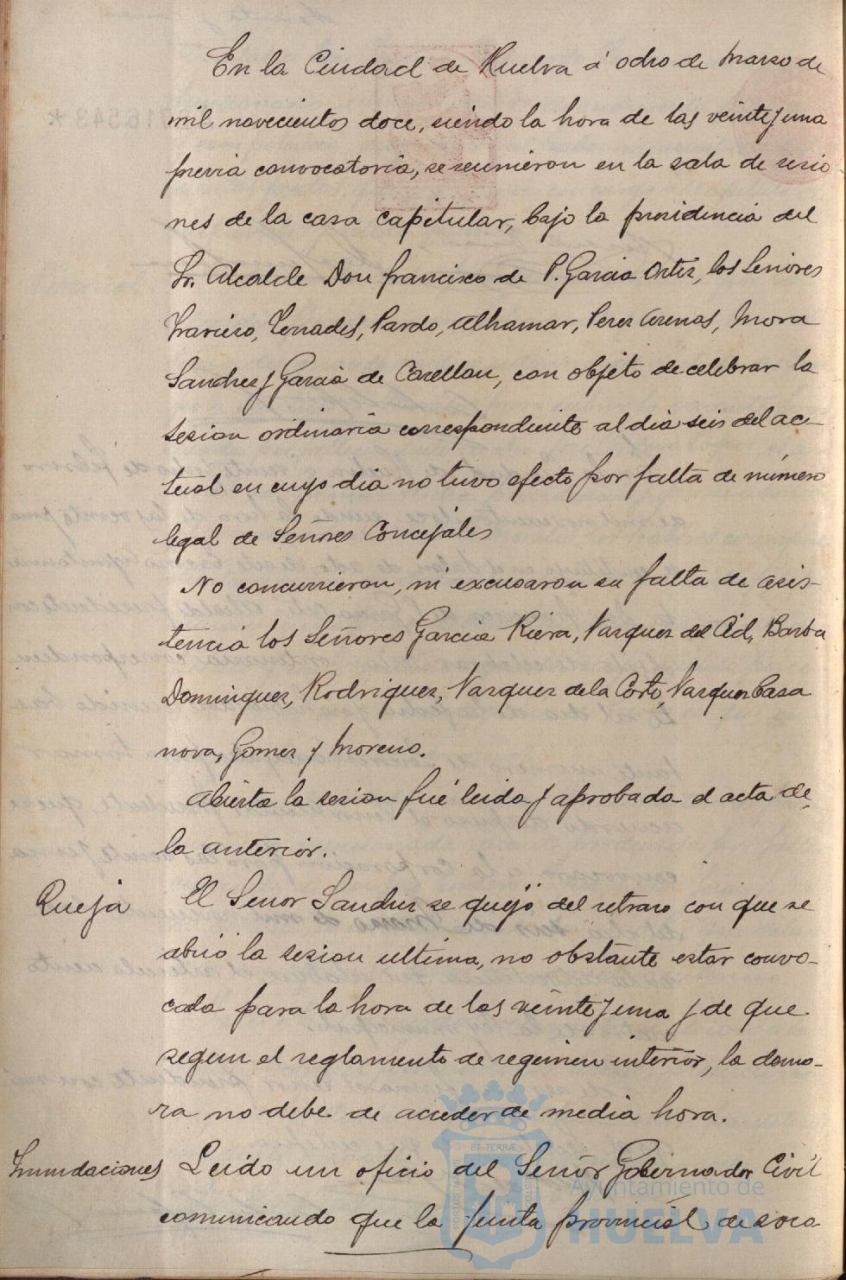 En la Ciudad de Huelva á ocho de Marzo de
mil novecientos doce, siendo la hora de las veinte y una
previa convocatoria, se reunieron en la sala de sesio
nes de la casa capitular, bajo la presidencia del
Sr. Alcalde Don Francisco de P. Garcia Ortiz, los Señores
Terrades, Pardo, Alhamar, Perez Arenas, Mora
Sanchez y Garcia de Casellau, con objeto de celebrar la
sesion ordinaria correspondiente al dia seis del ac-
tual en cuyo dia no tuvo efecto por falta de número
legal de Señores Concejales
No concurrieron, ni excusaron su falta de asis-
tencia los Señores Garcia Riera, Vazquez del Cid, Barba
Dominguez, Rodriguez, Vazquez de la Corte, Vazquez Casa
nova, Gomez y Moreno.
Abierta la sesion fué leida y aprobada el acta de
la anterior.
Queja El Señor Sanchez se quejó del retraso con que se
abrió la sesion ultima, no obstante estar convo-
cada para la hora de las veinte y una y de que
segun el reglamento de regimen interior, la demo-
ra no debe de acceder de media hora.
Inundaciones Leido un oficio del Señor Gobernador Civil
comunicando que la Junta provincial de soco
Ayuntamiento de
HUELVA